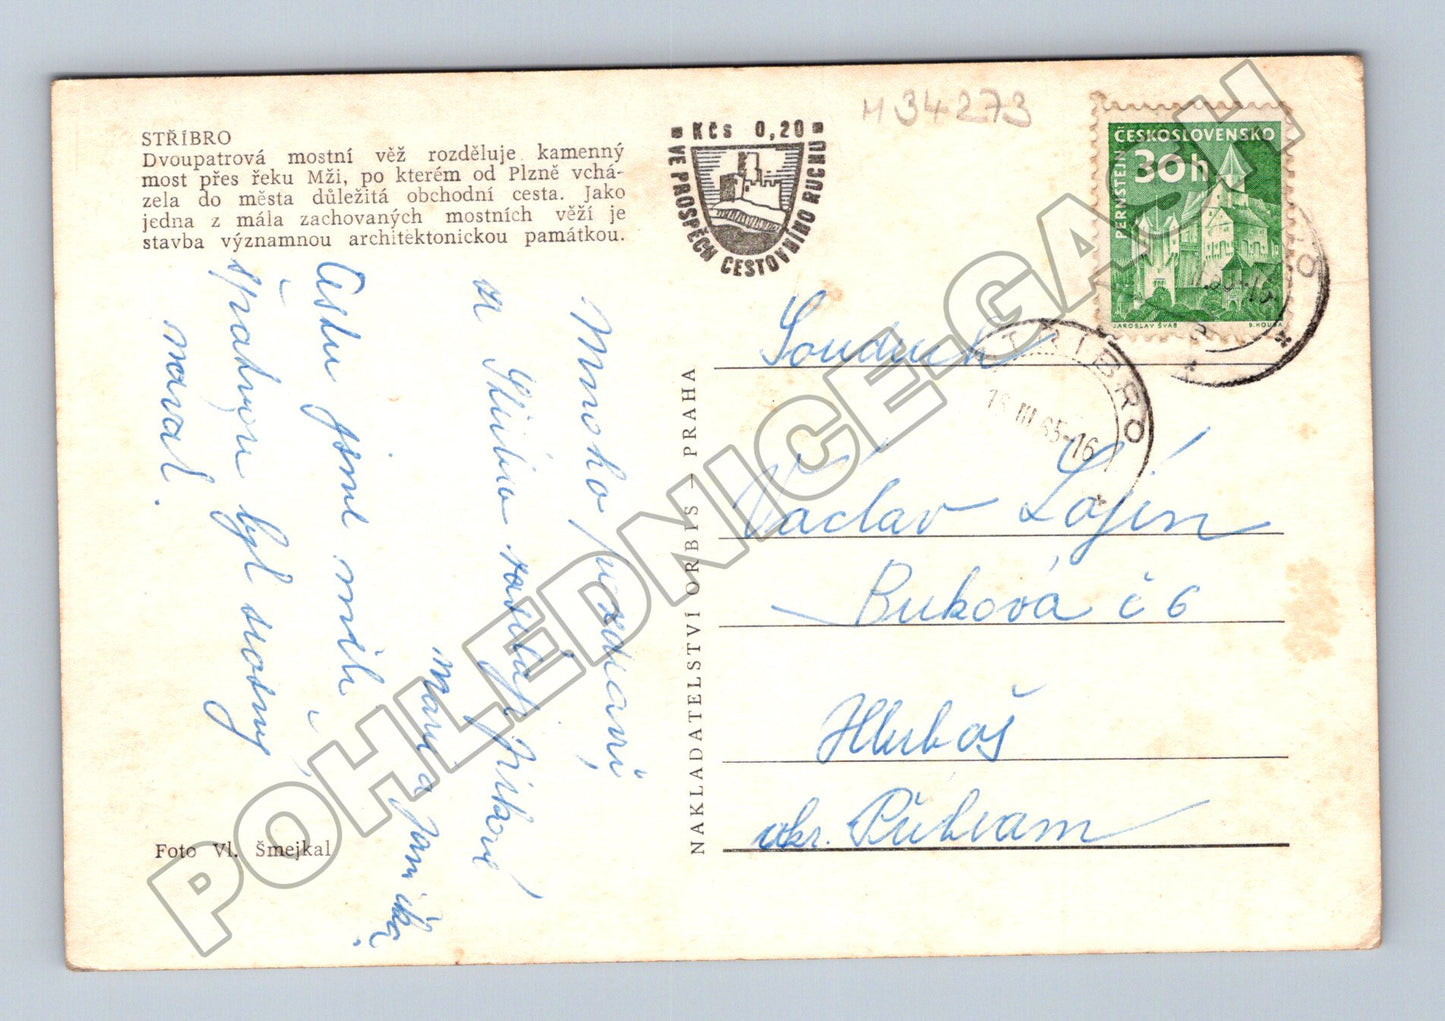 STŘÍBRO
Dvoupatrová mostní věž rozděluje kamenný
most přes řeku Mži, po kterém od Plzně vchá-
zela do města důležitá obchodní cesta. Jako
jedna z mála zachovaných mostních věží je
stavba významnou architektonickou památkou.
Kčs 0,20
VE PROSPĚCH CESTOVNÍHO RUCHU
M 34273
ČESKOSLOVENSKO
30h
PERNŠTEJN
JAROSLAV ŠVÁB
B. HOUSA
STŘÍBRO
III 65-16
Mnoho pozdravů
ze Stříbra
Mařì a
jsme měli
špatnou byl
Soudruh
Václav Lojín
Buková č 6
Hluboš
okr. Příbram
NAKLADATELSTVÍ ORBIS — PRAHA
Foto Vl. Šmejkal
POHLEDNICE-GASCH